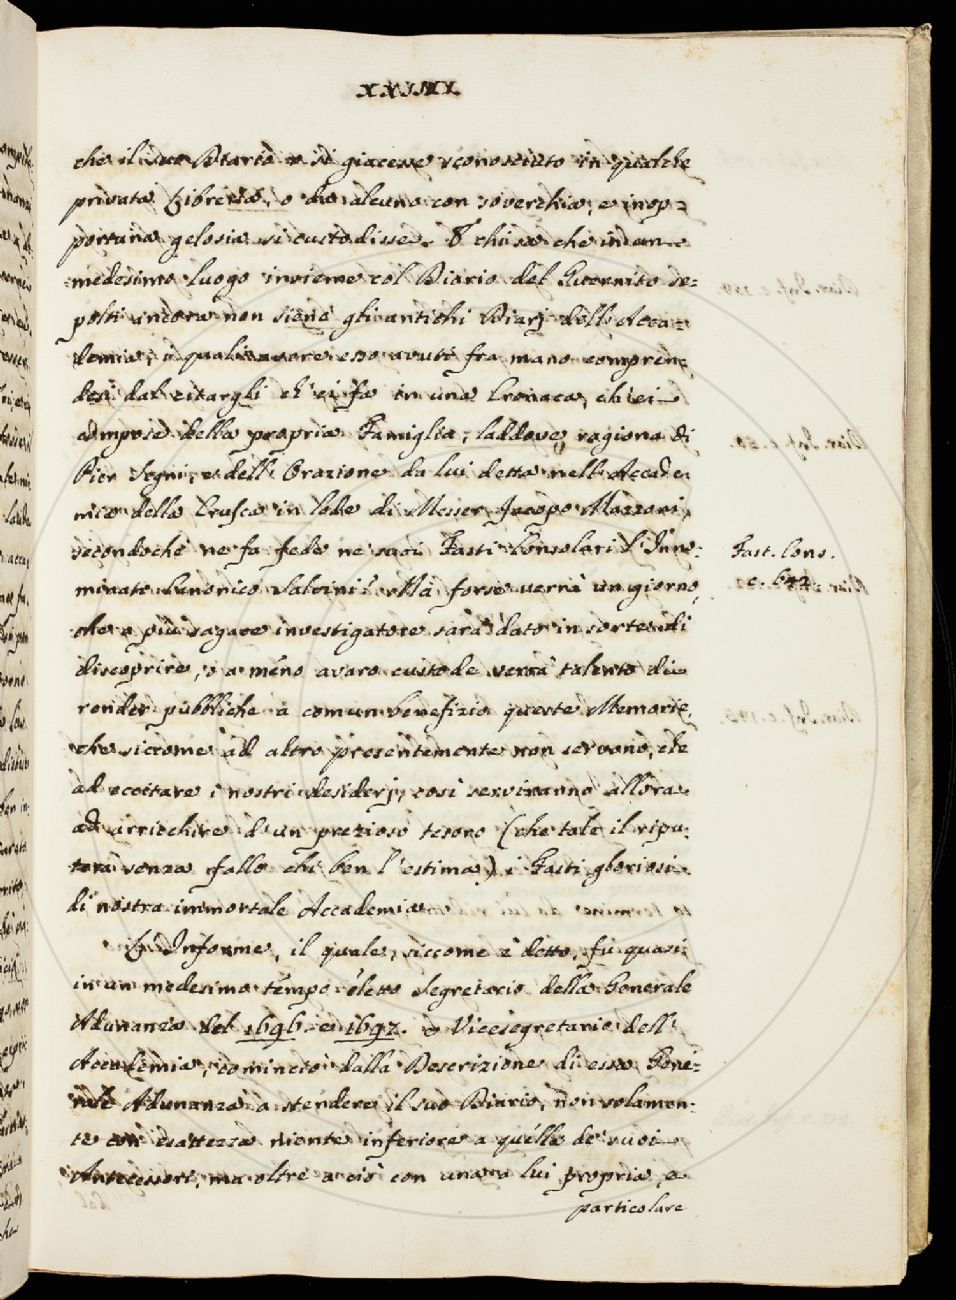 che il suo Diario o si giacesse sconosciuto in qualche
privata Libreria, o da alcuno con soverchia, e inop=
portuna gelosia si custodisse. E chi sa che in un
medesimo luogo insieme col Diario del Guernito se=
polti ancora non siene gli antichi Diarj dell' Acca=
demia, i quali avere esso avuti fra mano compren=
desi dal citargli ch' ei fa in una Cronaca, ch' ei
compose della propria Famiglia, laddove ragiona di
Pier Segni, e dell' Orazione da lui detta nell' Accade=
mia della Crusca in lode di Messer Jacopo Mazzoni,
secondochè ne fa fede ne' suoi Fasti Consolari l' Inno=
minato Canonico Salvini. Ma forse verrà un giorno,
che a più sagace investigatore sarà dato in sorte di
discoprire, o a meno avaro custode verrà talento di
render pubbliche a comun benefizio queste Memorie,
che siccome ad altro presentemente non servono, che
ad eccitare i nostri desiderj, così serviranno allora
ad arricchire d' un prezioso tesoro (che tale il ripu=
terà senza fallo chi ben l' estima) i Fasti gloriosi
di nostra immortale Accademia.
L' Informe, il quale, siccome è detto, fu quasi
in un medesimo tempo eletto Segretario della Generale
Adunanza del 1696. e 1697. e Vicesegretario dell'
Accademia, cominciò dalla Descrizione di essa Gene=
rale Adunanza a stendere il suo Diario, non solamen=
te con esattezza niente inferiore a quella de' suoi
Antecessori, ma oltre a ciò con una a lui propria, e
particolare
Fast. Cons.